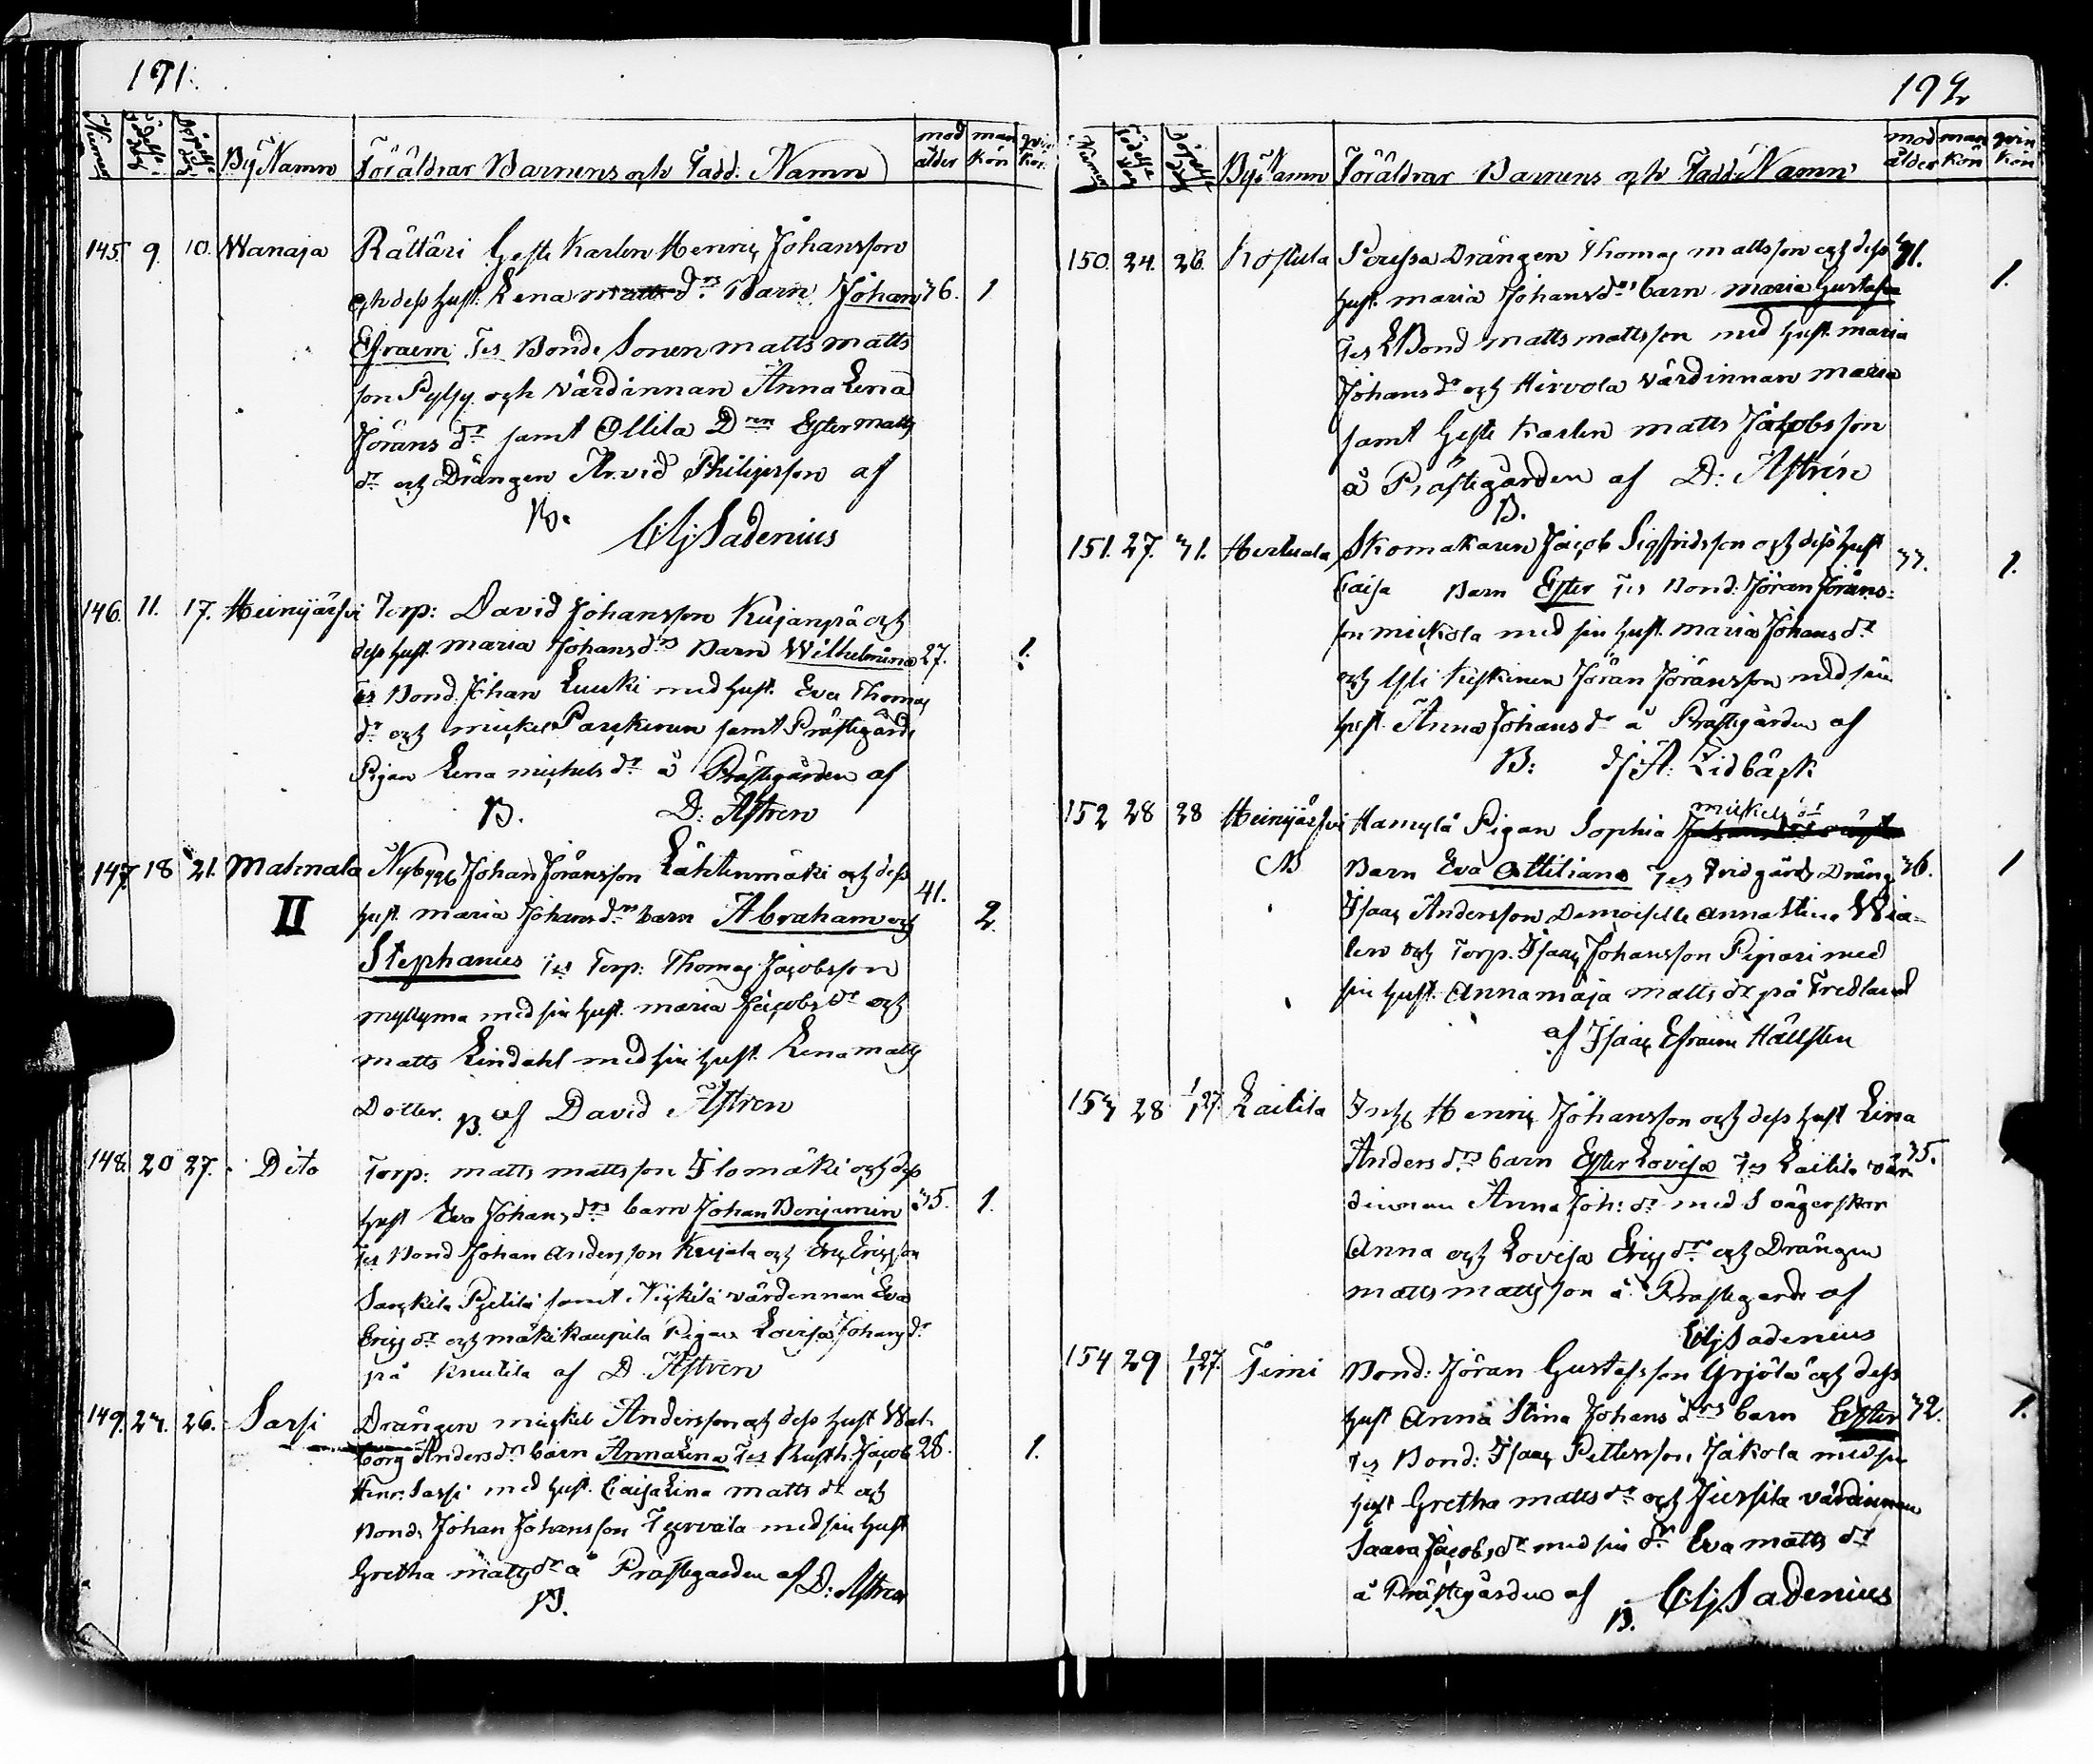 191.
Numer Födelse dag Döpelse dag By Namn Föräldrar Barnens och Fadd: Namn mod ålder man kön qvin kön
145. 9. 10. Wanaja Rättäri Geste Karlen Henric Johansson
och dess hust. Lena matts dr Barn Johan 36. 1
Efraem Tes Bonde Sonen matts matts
son Pyly och Värdinnan Anna Lena
Jörans dr samt Ollila Dren Ester matts
dr och Drängen Arvid Philipsson af
B. Elj Sadenius
146. 11. 17. Heinijärfvi Torp: David Johansson Kujanpä och
dess hust. maria Johans drs Barn Wilhelmina 27. 1.
Tes Bond. Johan Luuki med hust. Eva Thomas
dr och mickel Parckinen samt Prästegårds
Pigan Lena michels dr å Prästegården af
B. D: Astren
147 18 21. Mahnala Nybygg Johan Jöransson Lähtenmäki och dess 41.
II hust. maria Johans drs barn Abraham och 2.
Stephanus Tes Torp: Thomas Jacobsson
myllyma med sin hust. maria Jacobs dr och
matts Lindahl med sin hust. Lena matts
Dotter. B. af David Astren
148. 20 27. Dito Torp: matts mattsson Ilomäki och dess
hust Eva Johans drs barn Johan Benjamin 35. 1.
Tes Bond Johan Andersson Kujala och Eric Ericsson
Sarkila Pjetilä samt Nickilä värdennan Eva
Erics dr och mäkikaupila Pigan Lovisa Johans dr
på Knutila af D. Astren
149. 23. 26. Sassi Drängen mickel Andersson och dess hust Wal-
borg Anders drs barn Anna Lena Tes Rusth. Jacob 28. 1.
Henr: Sassi med hust. Caisa Lina matts dr och
Bond: Johan Johansson Tervala med sin hust
Gretha matts dr å Prästegården af D: Astren
B.
192
Numer Födelse dag Döpelse dag By Namn Föräldrar Barnens och Fadd: Namn mod ålder man kön qvin kön
150. 24. 26. Kostula Drängen Thomas mattsson och dess 31.
hust. maria Johans drs barn maria Gustafva 1.
Tes Bond matts mattsson med hust. maria
Johans dr och Hirvola värdinnan maria
samt Geste Karlen matts Jacobsson
å Prästegården af D: Astrén
B.
151. 27. 31. Herttuala Skomakaren Jacob Sigfridsson och dess hust 33. 1.
Caisa Barn Ester Tes Bond: Jöran Jörans-
son mickola med sin hust. maria Johans dr
och Jöran Jöransson med sin
hust. Anna Johans dr å Prästegården af
B: A: Lidbäck
152 28 28 Heinijärfvi Hamylä Pigan Sophia mickels dr
B Barn Eva Ottiliana Tes Fridgårds Dräng 36. 1
Isaac Andersson Demoiselle Anna Stina Wia-
len och Torp. Isaac Johansson Pipari med
sin hust. Anna maja matts dr på Fredland
af Isaac Efraim Hällsten
153 28 1/1 27. Lailila Inh Henric Johansson och dess hust Lina
Anders drs barn Ester Lovisa Tes Lailila vär- 35.
dinnan Anna Joh: dr med Svägerskor
Anna och Lovisa Erics dr och Drängen
matts mattsson å Prästegård af
Elj Sadenius
154 29 1/1 27. Timi Bond: Jöran Gustafsson Yrjölä och dess
hust Anna Stina Johans drs barn Ester 32. 1.
Tes Bond: Isaac Pettersson Jakola med sin
hust Gretha matts dr och Jussila värdinnan
Saara Jacobs dr med sin dr Eva matts dr
å Prästegården af B. Elj Sadenius